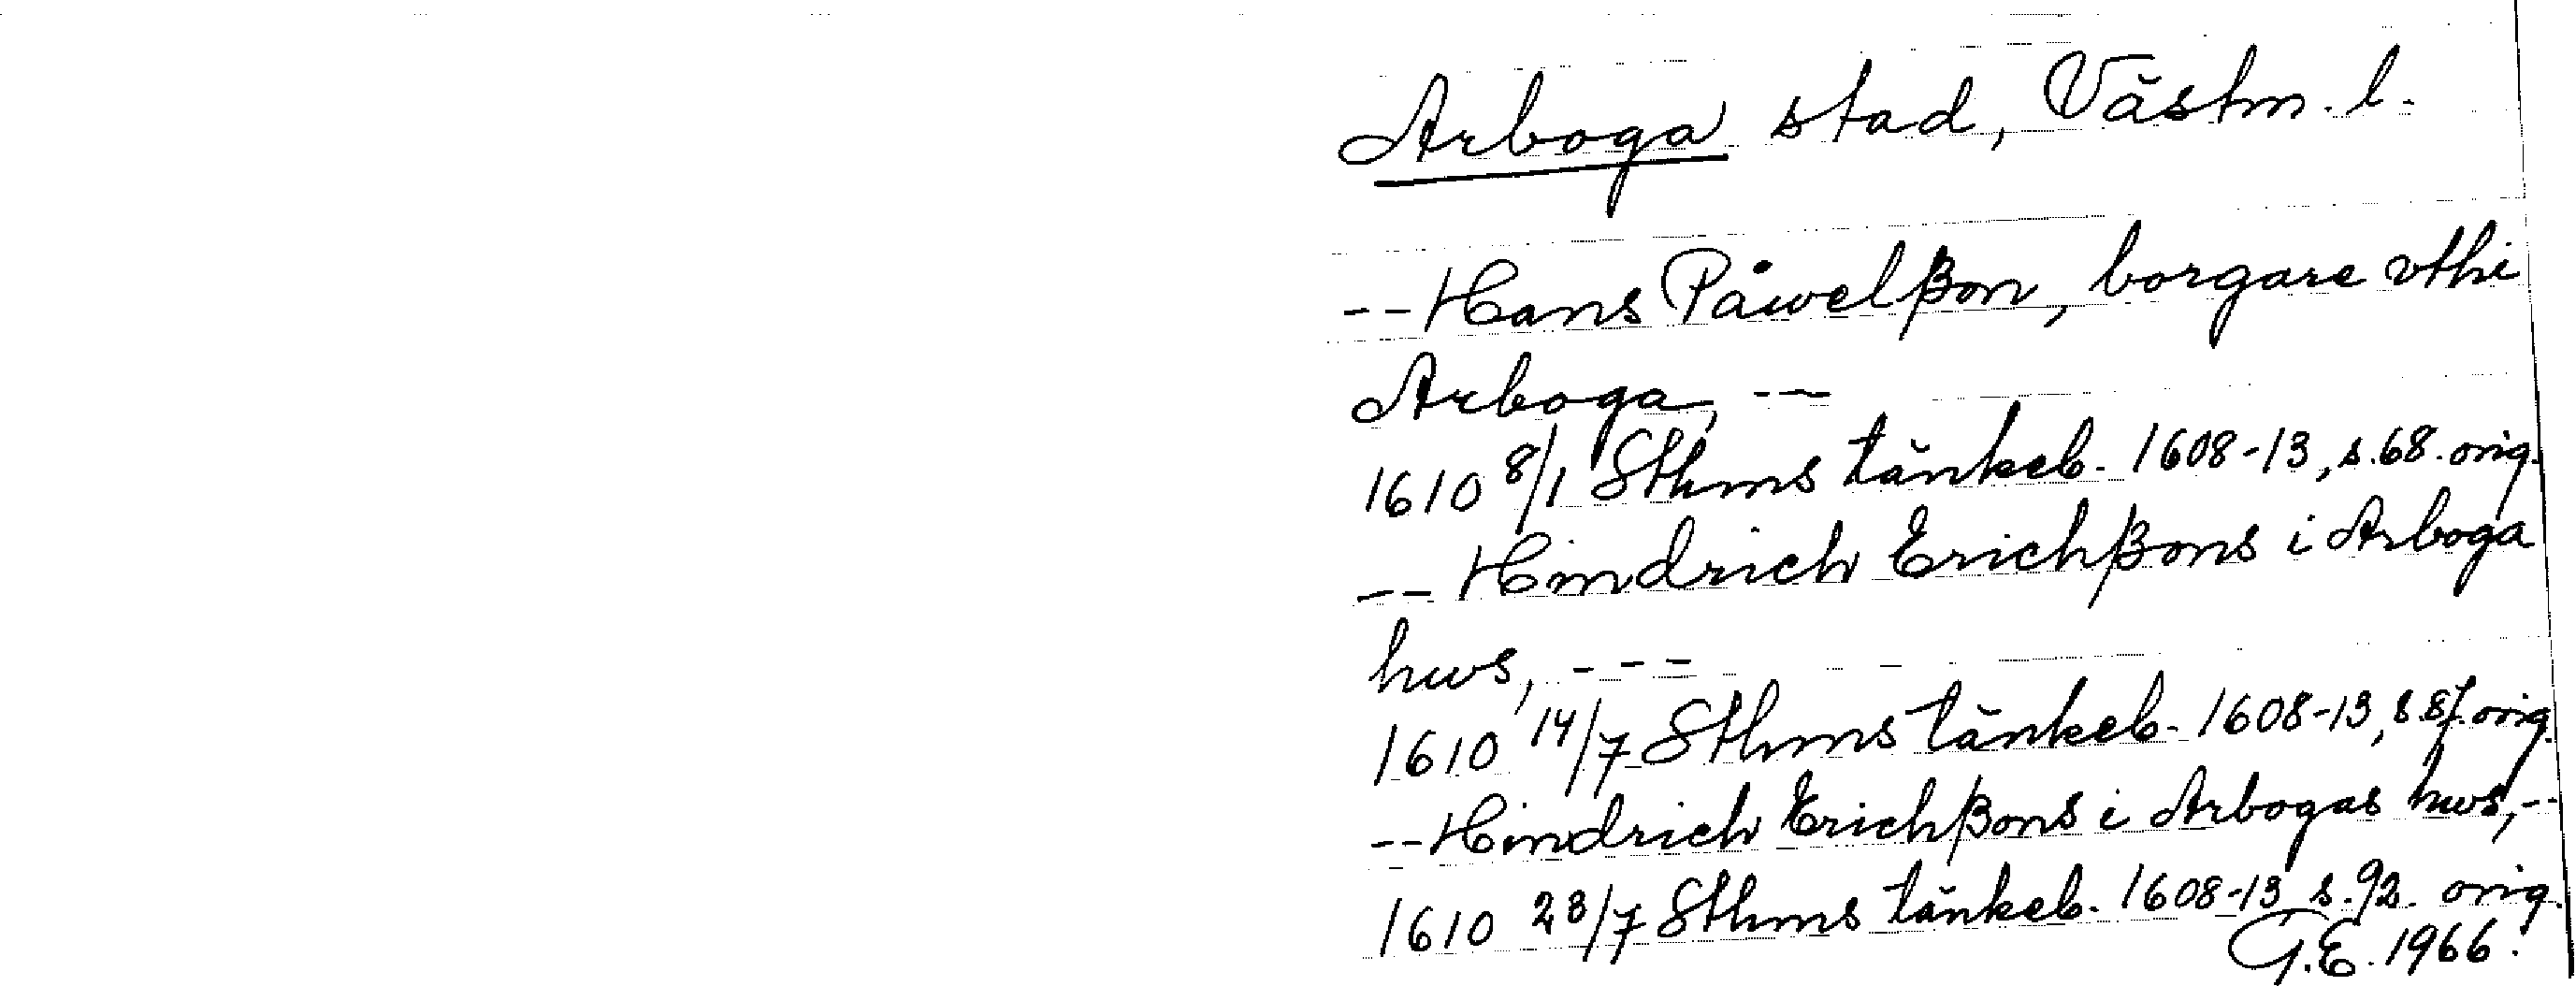 Arboga stad, Västm. l.
-- Hans Påwelßon, borgare vthi
Arboga, --
1610 8/1 Sthms tänkeb. 1608-13, s. 68. orig.
-- Hindrich Erichßons i Arboga
hws, ---
1610 14/7 Sthms tänkeb. 1608-13, s. 87. orig.
-- Hindrich Erichßons i Arbogas hws, --
1610 23/7 Sthms tänkeb. 1608-13 s. 92. orig.
G.E. 1966.